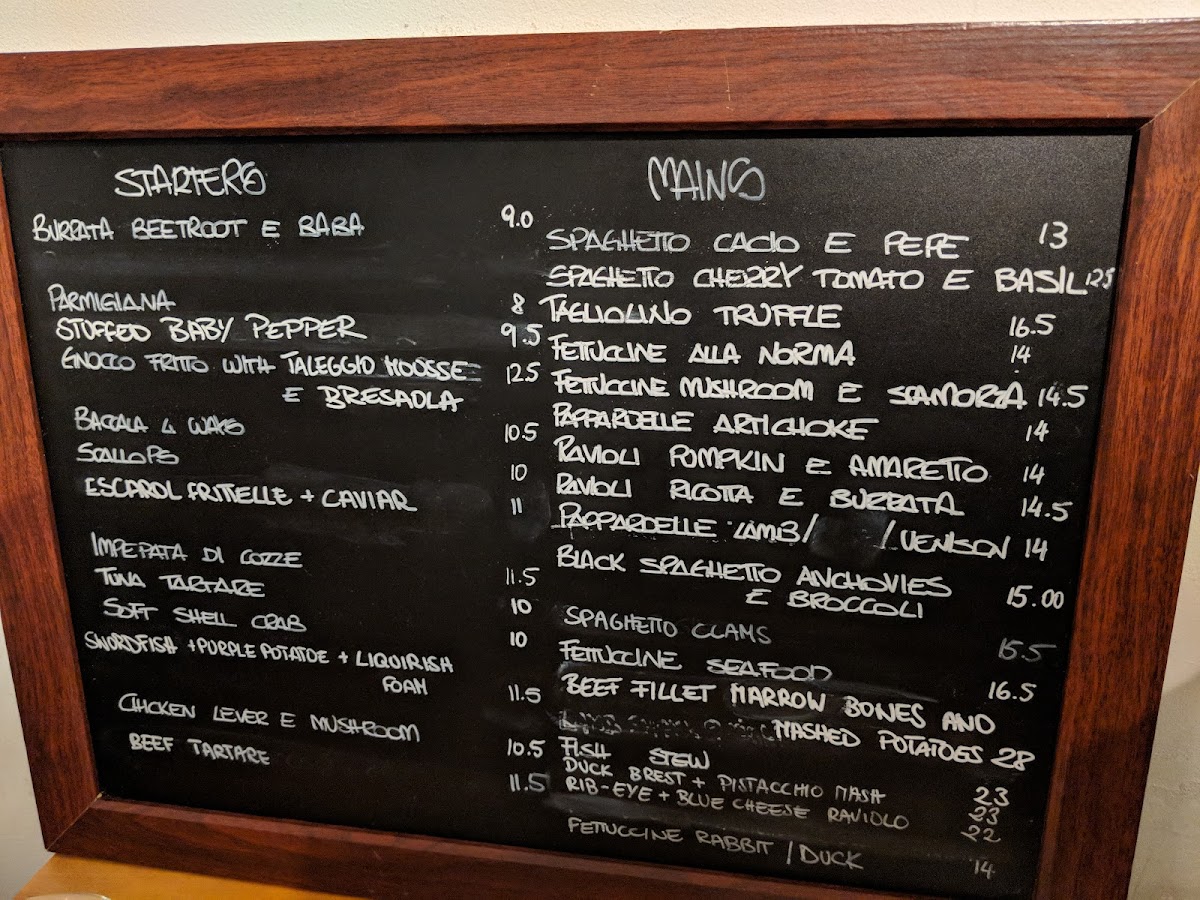 STARTERS
BURRATA BEETROOT E BABA 9.0
PARMIGIANA 8
STUFFED BABY PEPPER 9.5
GNOCCO FRITTO WITH TALEGGIO MOUSSE 12.5
E BRESAOLA
BACCALA 4 WAYS 10.5
SCALLOPS 10
ESCAROL FRITTELLE + CAVIAR 11
IMPEPATA DI COZZE
TUNA TARTARE 11.5
SOFT SHELL CRAB 10
SWORDFISH + PURPLE POTATOE + LIQUIRISH 10
FOAM
CIHCKEN LEVER E MUSHROOM 11.5
BEEF TARTARE 10.5
11.5
MAINS
SPAGHETTO CACIO E PEPE 13
SPAGHETTO CHERRY TOMATO E BASIL 12.5
TAGLIOLINO TRUFFLE 16.5
FETTUCCINE ALLA NORMA 14
FETTUCCINE MUSHROOM E SCAMORZA 14.5
PAPPARDELLE ARTICHOKE 14
RAVIOLI PUMPKIN E AMARETTO 14
RAVIOLI RICOTTA E BURRATA 14.5
PAPPARDELLE LAMB/ /VENISON 14
BLACK SPAGHETTO ANCHOVIES
E BROCCOLI 15.00
SPAGHETTO CLAMS 15.5
FETTUCCINE SEAFOOD 16.5
BEEF FILLET MARROW BONES AND
MASHED POTATOES 28
FISH STEW 23
DUCK BREST + PISTACCHIO MASH 23
RIB-EYE + BLUE CHEESE RAVIOLO 22
FETTUCCINE RABBIT / DUCK 14